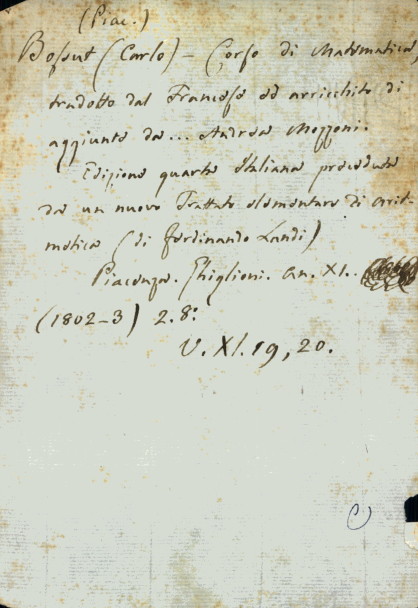 (Piac.)
Bossut (Carlo) – Corso di Matematica,
tradotto dal Francese ed arricchito di
aggiunte da... Andrea Mozzoni.
Edizione quarta Italiana preceduta
da un nuovo Trattato elementare di arit-
metica (di Ferdinando Landi)
Piacenza. Ghiglioni. an. XI..
(1802-3) 2. 8.°
V. XI. 19, 20.